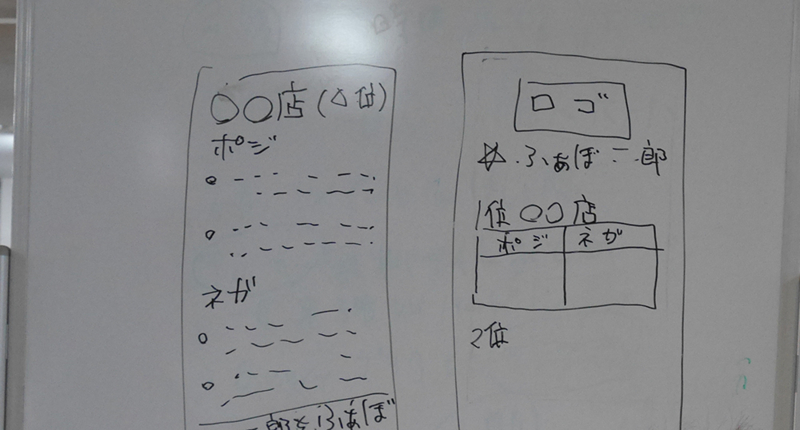 ○○店(△位)
ポジ
ネガ
郎をふぁぼ
ロゴ
☆ふぁぼ二郎
1位 ○○店
ポジ ネガ
2位